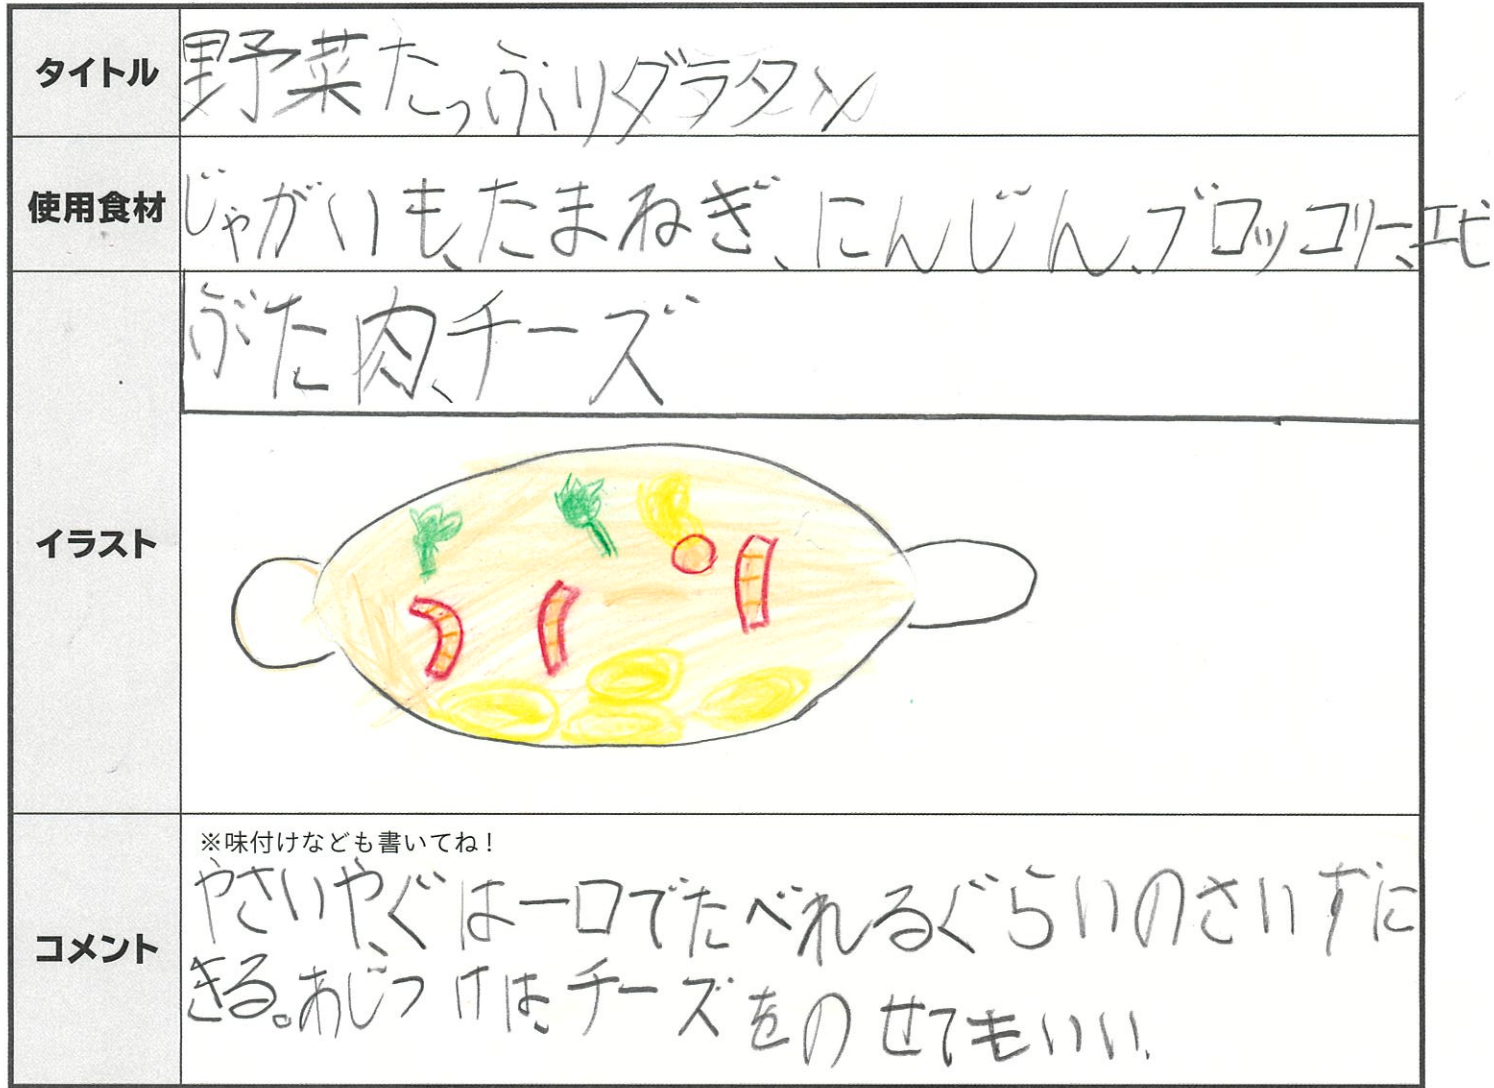 タイトル
野菜たっぷりグラタン
使用食材
じゃがいも、たまねぎ、にんじん、ブロッコリー、エビ
ぶた肉、チーズ
イラスト
※味付けなども書いてね！
コメント
やさいや、ぐは一口でたべれるぐらいのさいずに
きる。あじつけは、チーズをのせてもいい。